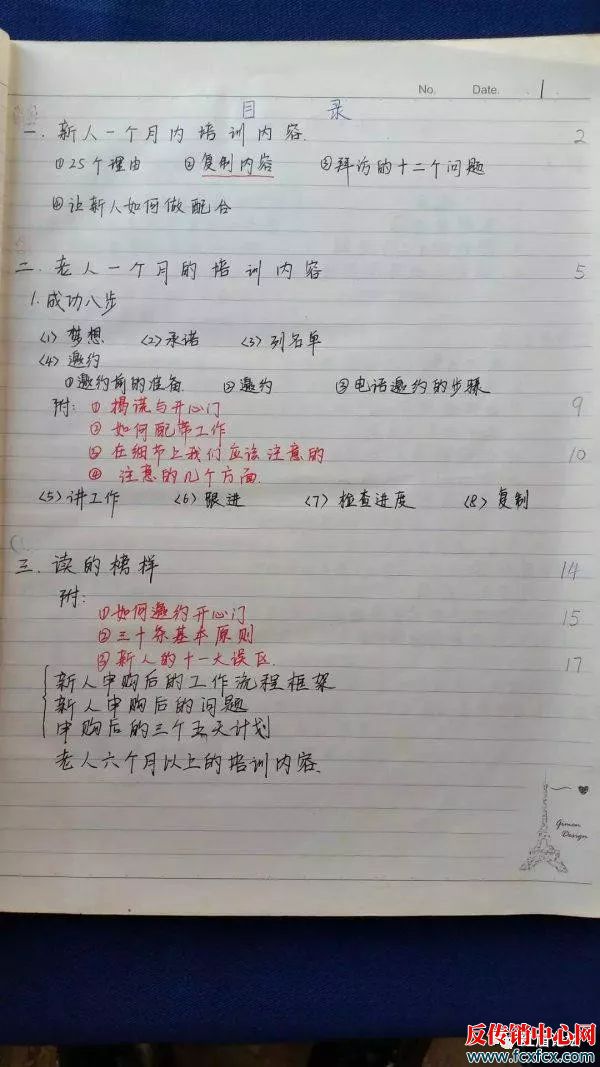 No. Date. 1
目 录
一. 新人一个月内培训内容. 2
①25个理由 ②复制内容 ③拜访的十二个问题
④让新人如何做配合
二. 老人一个月的培训内容 5
1. 成功八步
(1) 梦想 (2) 承诺 (3) 列名单
(4) 邀约
①邀约前的准备 ②邀约 ③电话邀约的步骤
附: ① 揭谎与开心门 9
② 如何配带工作
③ 在细节上我们应该注意的 10
④ 注意的几个方面.
(5) 讲工作 (6) 跟进 (7) 检查进度 (8) 复制
三. 读的榜样 14
附:
①如何邀约开心门 15
②三十条基本原则
③新人的十一大误区. 17
新人申购后的工作流程框架
新人申购后的问题
申购后的三个五天计划
老人六个月以上的培训内容.
Gimen
Design
反传销中心网
www.fcxfcx.com